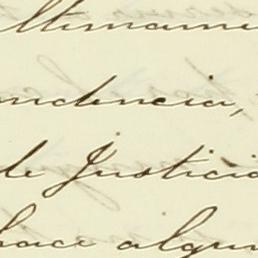 ltimame
ndencia,
de Justicia
hace algun